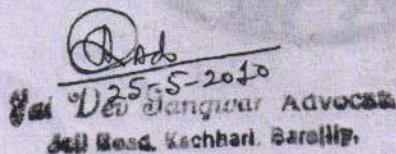 Ado
25-5-2010
Jai Dev Gangwar ADVOCATE
Jail Road, Kachhari, Bareilly.